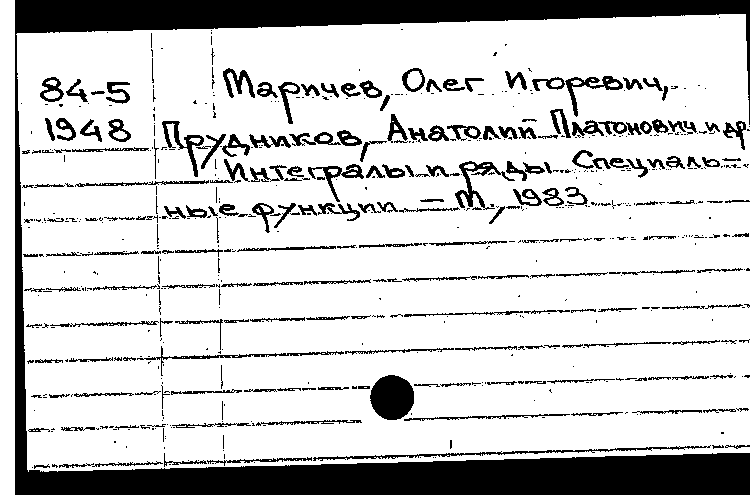 84-5 Маричев, Олег Игоревич,
1948 Прудников, Анатолий Платонович и др
Интегралы и ряды Специаль-
ные функции – М., 1983